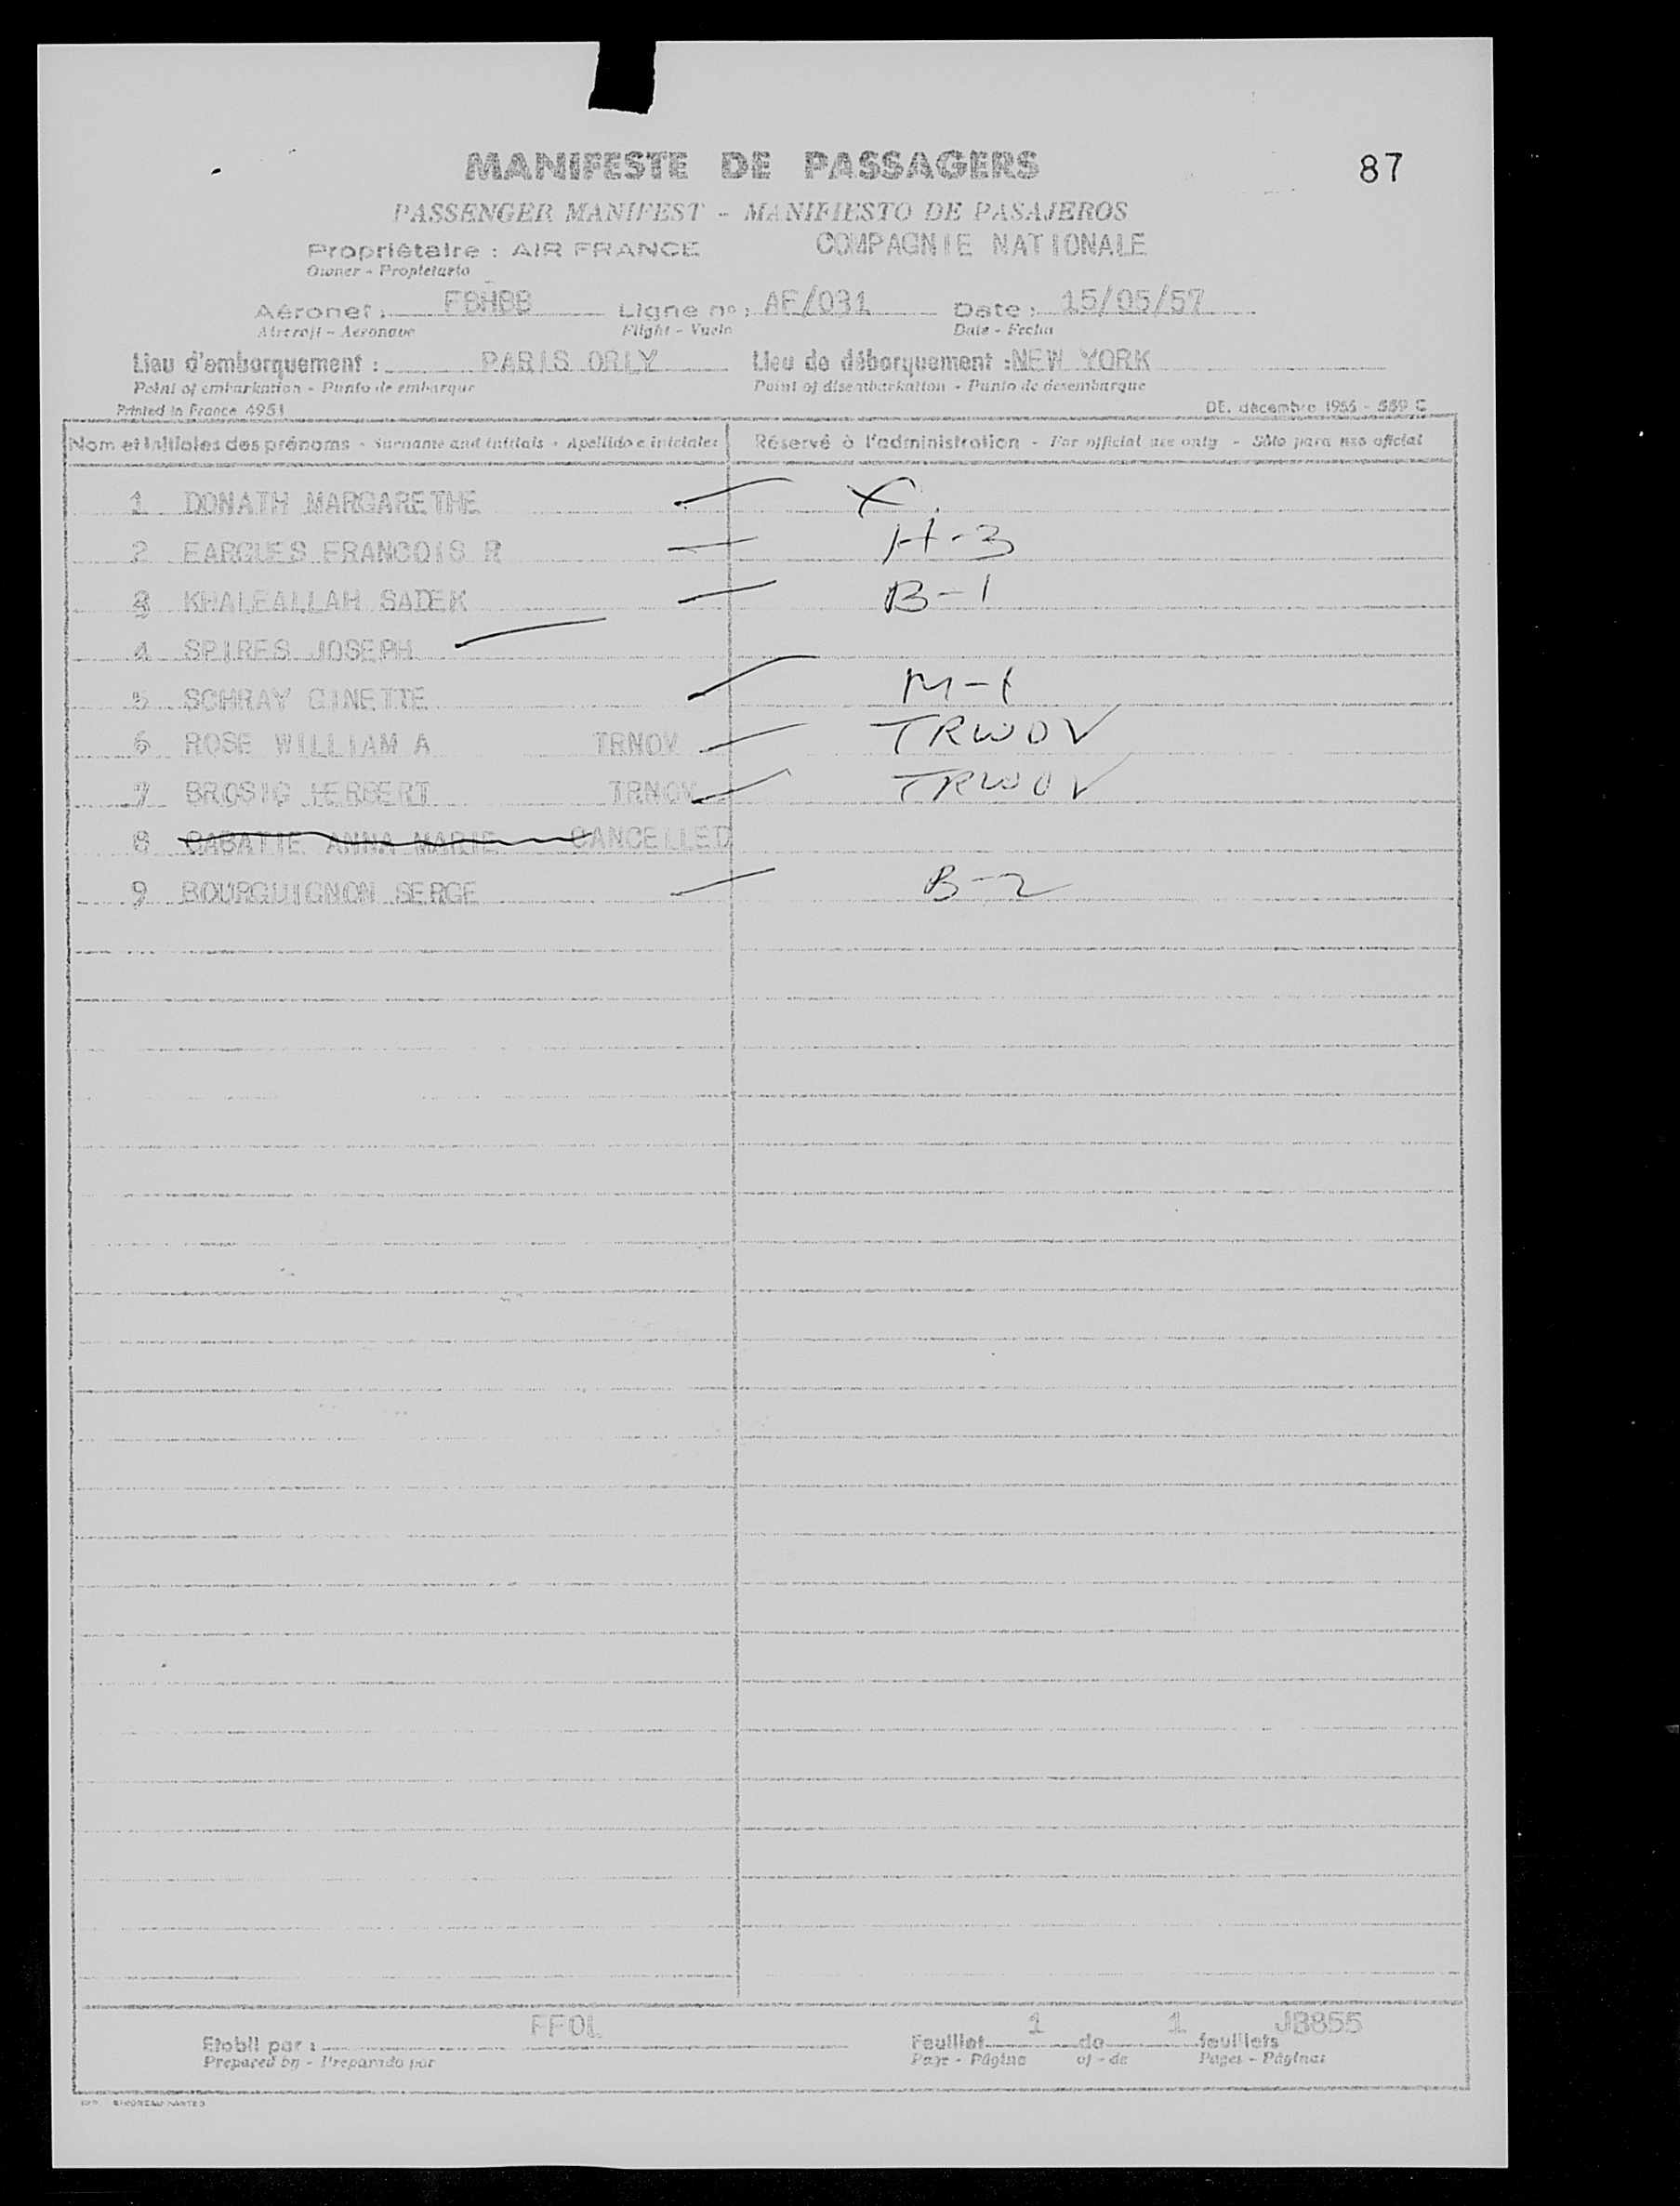 MANIFESTE DE PASSAGERS
87
PASSENGER MANIFEST - MANIFIESTO DE PASAJEROS
Propriétaire : AIR FRANCE COMPAGNIE NATIONALE
Owner - Propietario
Aéronef : FBHBB Ligne no : AF/031 Date : 15/05/57
Aircraft - Aeronave Flight - Vuelo Date - Fecha
Lieu d'embarquement : PARIS ORLY Lieu de débarquement : NEW YORK
Point of embarkation - Punto de embarque Point of disembarkation - Punto de desembarque
Printed in France 4951 DE. décembre 1955 - 559 C
Nom et initiales des prénoms - Surname and initials - Apellido e iniciales Réservé à l'administration - For official use only - Sólo para uso oficial
1 DONATH MARGARETHE X
2 FARGUES FRANCOIS R H-3
3 KHALEALLAH SADEK B-1
4 SPIRES JOSEPH
5 SCHRAY GINETTE M-1
6 ROSE WILLIAM A TRNOV TRWOV
7 BROSIG HERBERT TRNOV TRWOV
8 CABATIE ANNA MARIE CANCELLED
9 BOURGUIGNON SERGE B-2
FFOL 1 1 JB855
Etabli par : Feuillet de feuillets
Prepared by - Preparado por Page - Página of - de Pages - Páginas